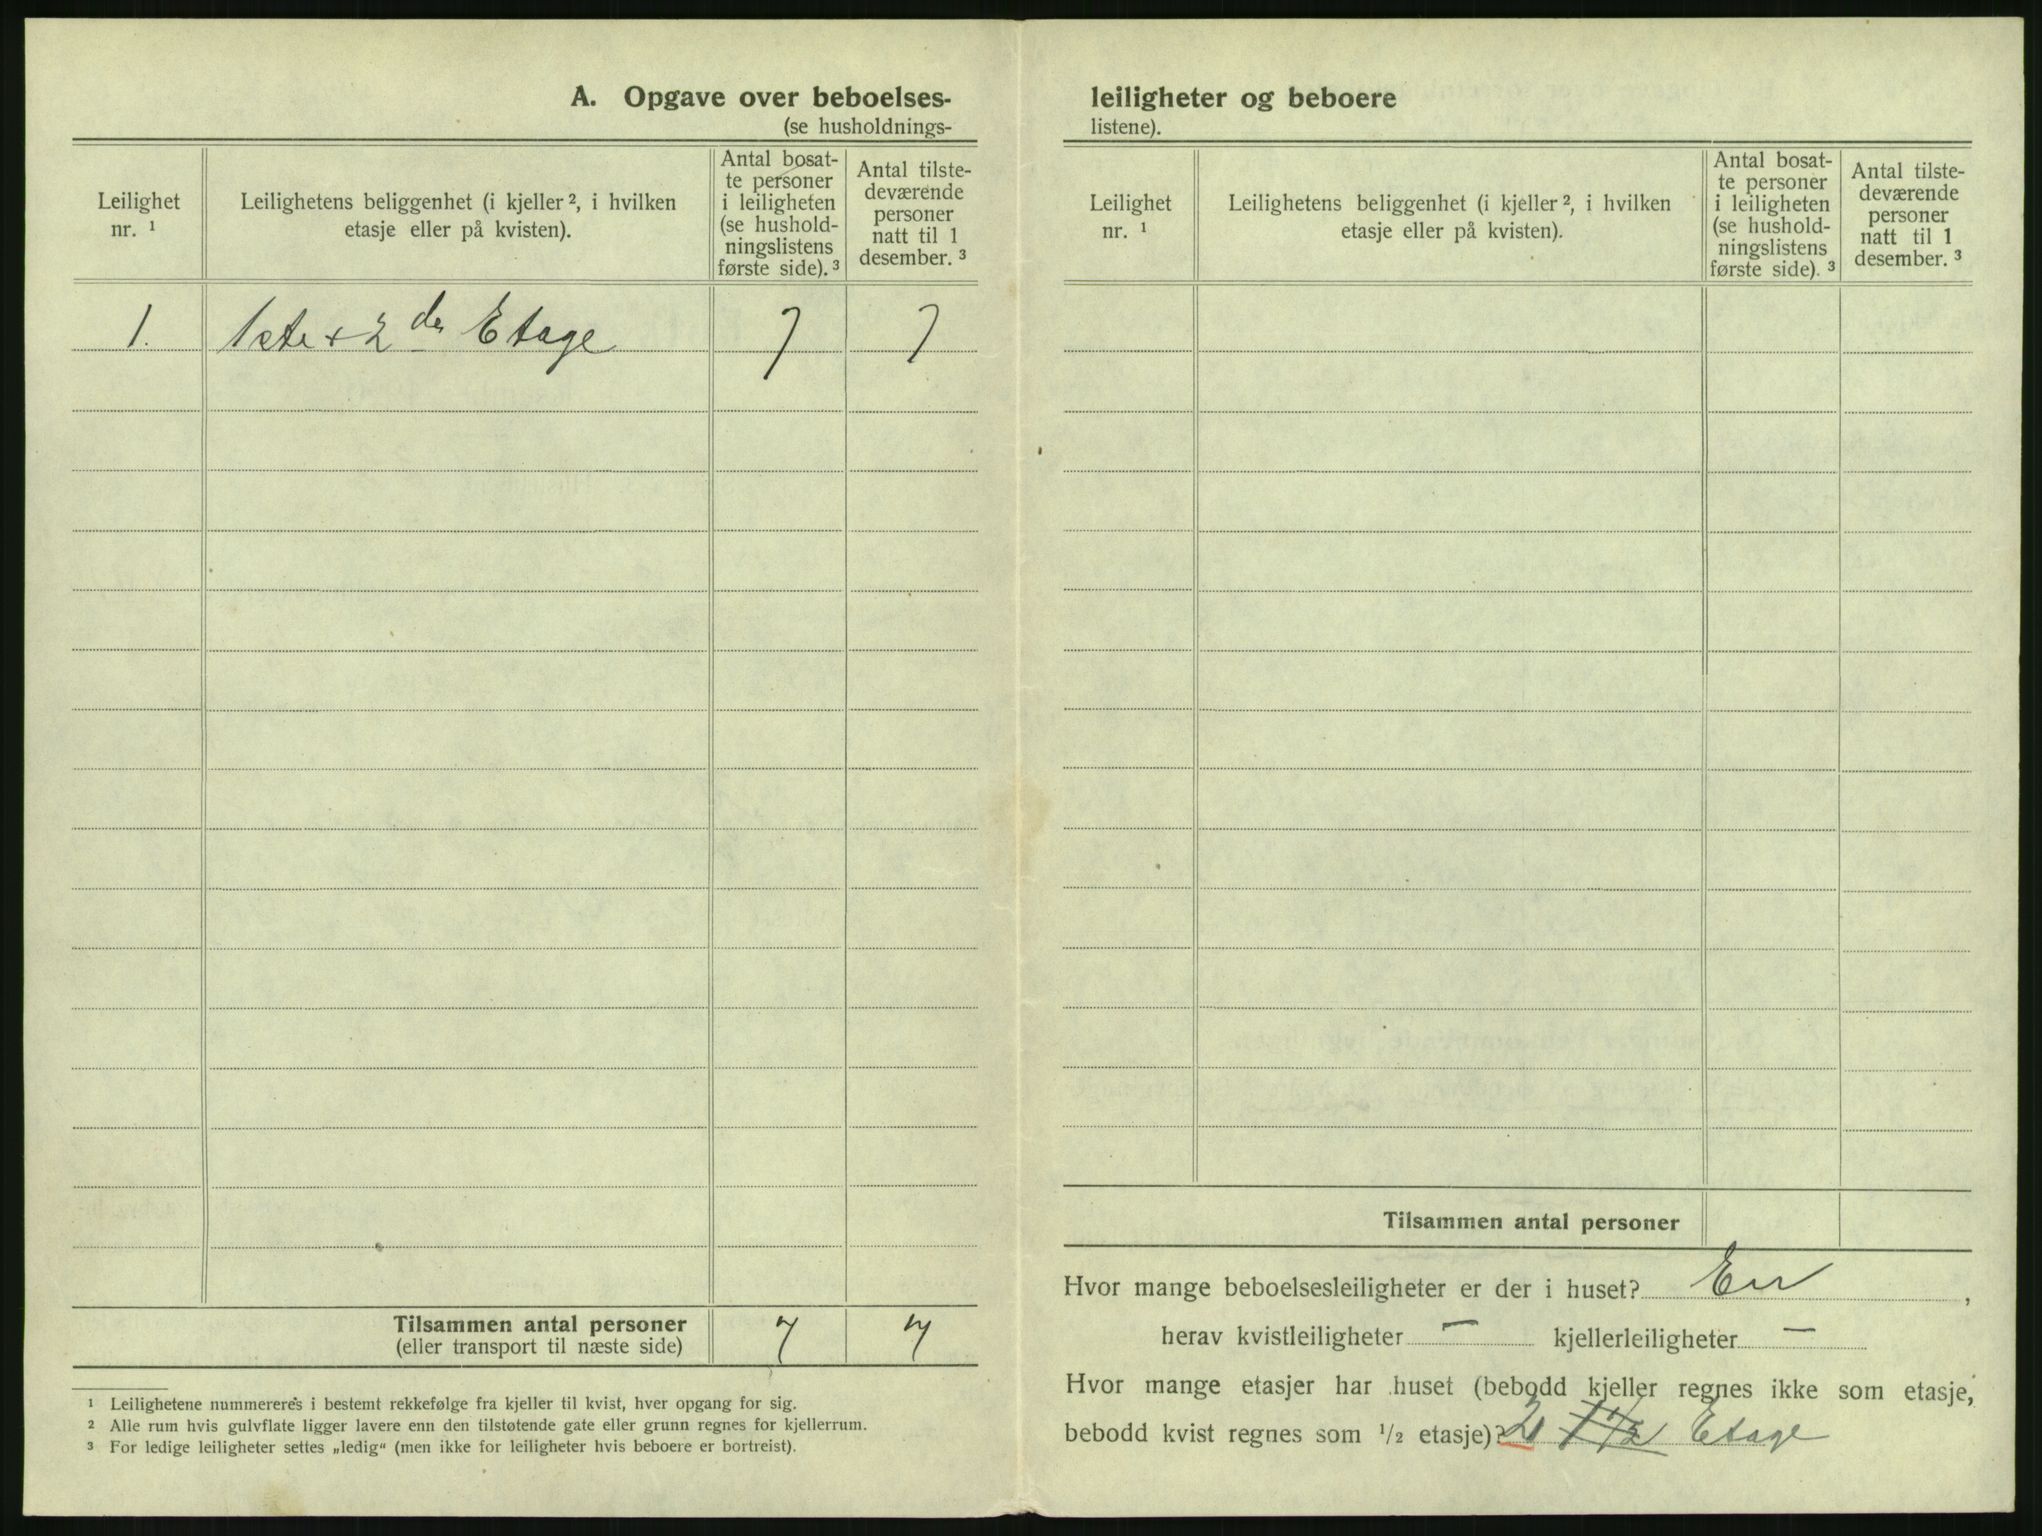 A. Opgave over beboelses-
(se husholdnings-
Leilighet
nr. ¹
Leilighetens beliggenhet (i kjeller ², i hvilken
etasje eller på kvisten).
Antal bosat-
te personer
i leiligheten
(se hushold-
ningslistens
første side). ³
Antal tilste-
deværende
personer
natt til 1
desember. ³
1. 1ste + 2den Etage 7 7
Tilsammen antal personer 7 7
(eller transport til næste side)
¹ Leilighetene nummereres i bestemt rekkefølge fra kjeller til kvist, hver opgang for sig.
² Alle rum hvis gulvflate ligger lavere enn den tilstøtende gate eller grunn regnes for kjellerrum.
³ For ledige leiligheter settes „ledig“ (men ikke for leiligheter hvis beboere er bortreist).
leiligheter og beboere
listene).
Leilighet
nr. ¹
Leilighetens beliggenhet (i kjeller ², i hvilken
etasje eller på kvisten).
Antal bosat-
te personer
i leiligheten
(se hushold-
ningslistens
første side). ³
Antal tilste-
deværende
personer
natt til 1
desember. ³
Tilsammen antal personer
Hvor mange beboelsesleiligheter er der i huset? En ,
herav kvistleiligheter — kjellerleiligheter —
Hvor mange etasjer har huset (bebodd kjeller regnes ikke som etasje,
bebodd kvist regnes som ½ etasje)? 2 1½ Etage